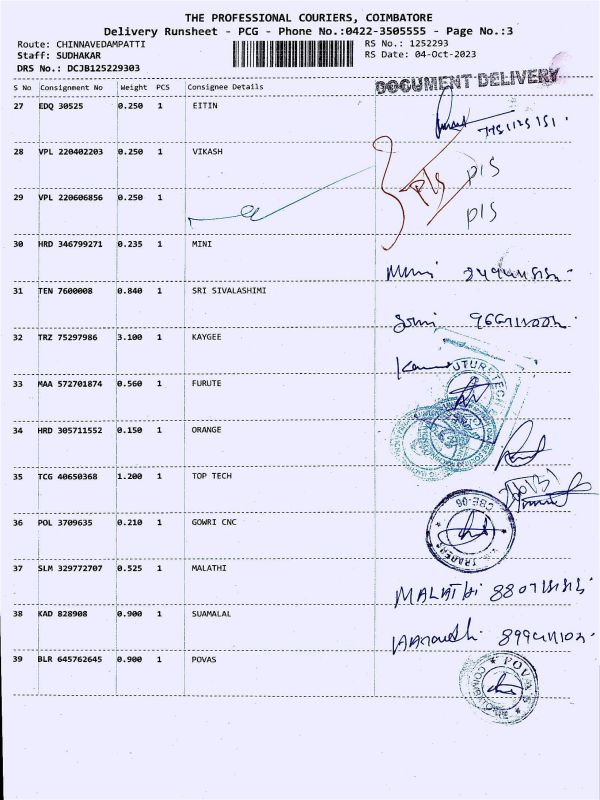 THE PROFESSIONAL COURIERS, COIMBATORE
Delivery Runsheet - PCG - Phone No.:0422-3505555 - Page No.:3
Route: CHINNAVEDAMPATTI RS No.: 1252293
Staff: SUDHAKAR RS Date: 04-Oct-2023
DRS No.: DCJB125229303
DOCUMENT DELIVERY
S No Consignment No Weight PCS Consignee Details
27 EDQ 30525 0.250 1 EITIN
28 VPL 220402203 0.250 1 VIKASH
P/S P/S
29 VPL 220606856 0.250 1
P/S
30 HRD 346799271 0.235 1 MINI
Mini
31 TEN 7600008 0.840 1 SRI SIVALASHIMI
32 TRZ 75297986 3.100 1 KAYGEE
33 MAA 572701874 0.560 1 FURUTE
FUTURE TECH
34 HRD 305711552 0.150 1 ORANGE
35 TCG 40650368 1.200 1 TOP TECH
36 POL 3709635 0.210 1 GOWRI CNC
CBE-06
TRADERS
37 SLM 329772707 0.525 1 MALATHI
MALATHI
38 KAD 828908 0.900 1 SUAMALAL
39 BLR 645762645 0.900 1 POVAS
POVA'S